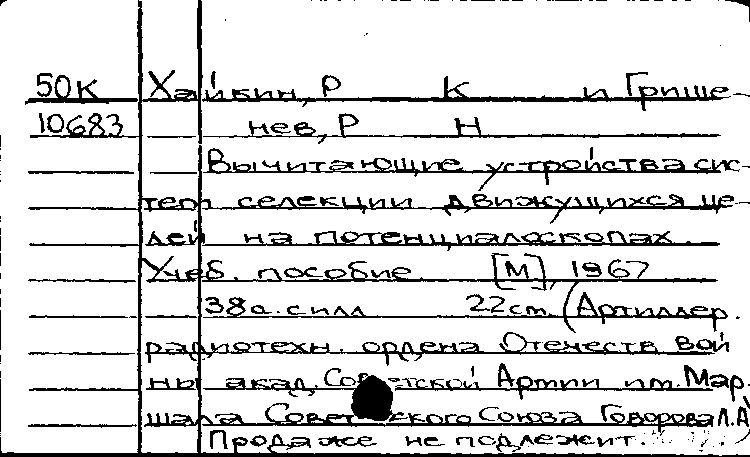 50К Хайкин, Р К и Грише-
10683 нев, Р Н
Вычитающие устройства сис-
тем селекции движущихся це-
лей на потенциалоскопах.
Учеб. пособие. [М], 1967
38с. с илл 22см. (Артиллер.
радиотехн. ордена Отечеств вой
ны акад. Советской Армии им. Мар.
шала Советского Союза Говорова Л.А)
Продаже не подлежит.